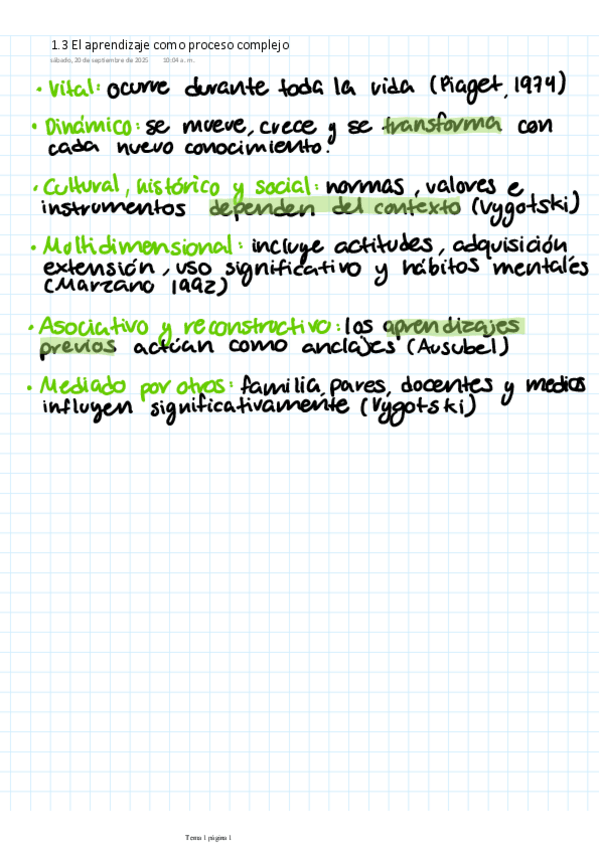 1.3 El aprendizaje como proceso complejo
sábado, 20 de septiembre de 2025 10:04 a. m.
• Vital: ocurre durante toda la vida (Piaget, 1974)
• Dinámico: se mueve, crece y se transforma con
cada nuevo conocimiento.
• Cultural, histórico y social: normas, valores e
instrumentos dependen del contexto (Vygotski)
• Multidimensional: incluye actitudes, adquisición
extensión, uso significativo y hábitos mentales
(Marzano 1992)
• Asociativo y reconstructivo: los aprendizajes
previos actúan como anclajes (Ausubel)
• Mediado por otros: familia, pares, docentes y medios
influyen significativamente (Vygotski)
Tema 1 página 1